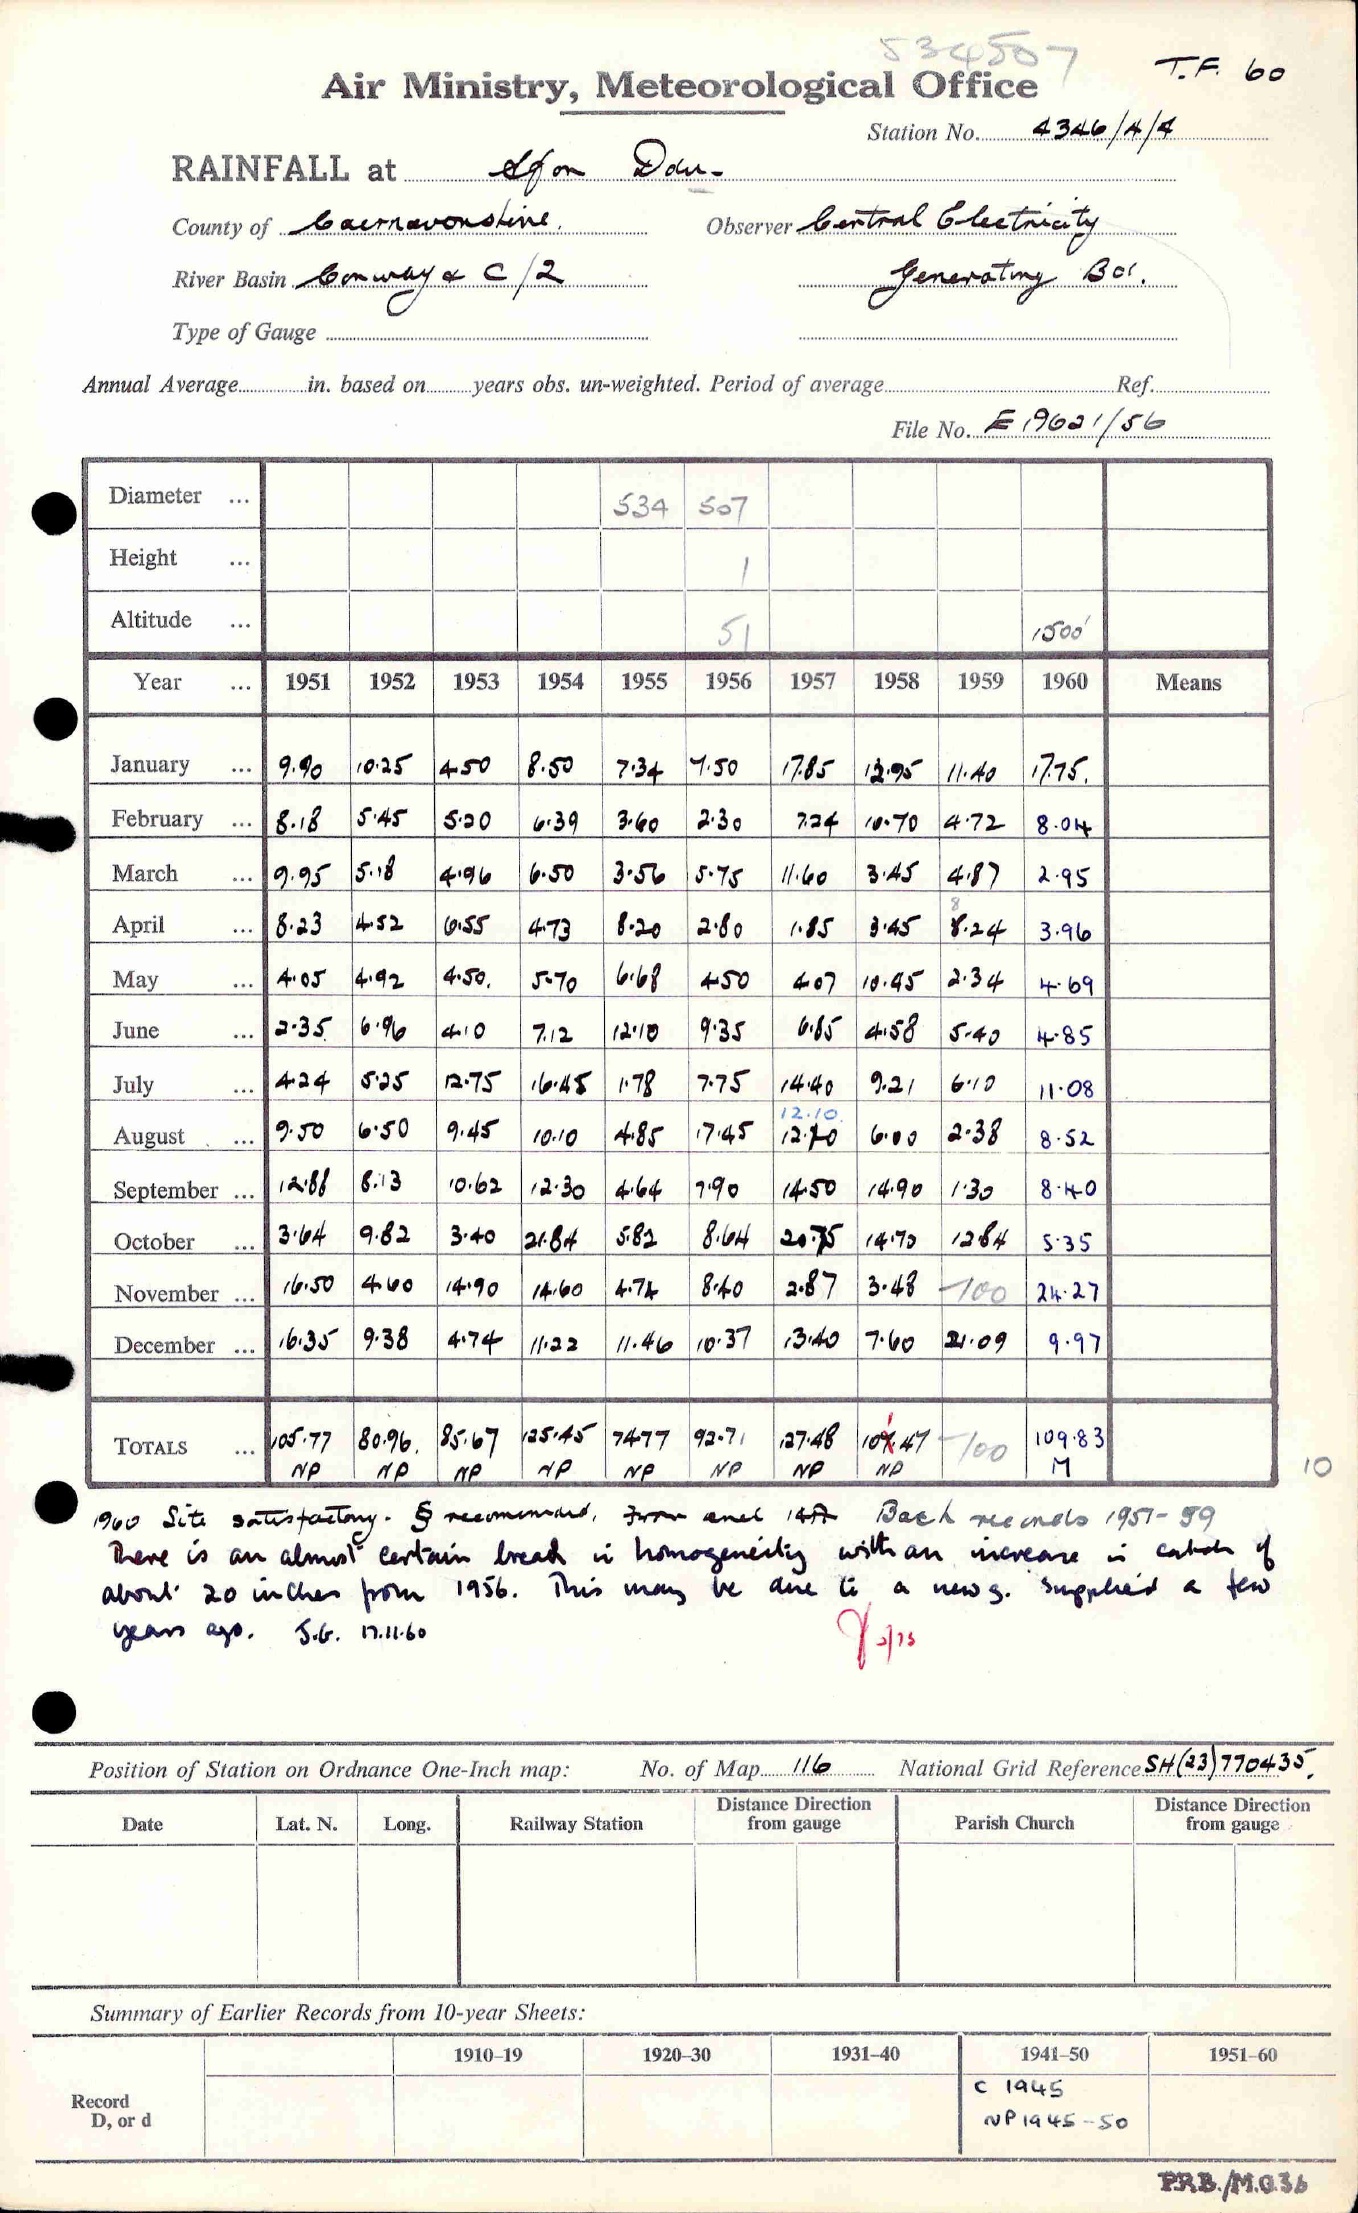 534507
T.F. 60
Air Ministry, Meteorological Office
Station No. 4346/A/4
RAINFALL at Afon Ddu
County of Caernavonshire. Observer Central Electricity
River Basin Conway & C/2 Generating Bd.
Type of Gauge
Annual Average in. based on years obs. un-weighted. Period of average Ref.
File No. E 19621/56
Diameter ... 534 507
Height ... 1
Altitude ... 51 1500'
Year ... 1951 1952 1953 1954 1955 1956 1957 1958 1959 1960 Means
January ... 9.90 10.25 4.50 8.50 7.34 7.50 17.85 12.95 11.40 17.75.
February ... 8.18 5.45 5.20 6.39 3.60 2.30 7.24 10.70 4.72 8.04
March ... 9.95 5.18 4.96 6.50 3.56 5.75 11.60 3.45 4.87 2.95
8
April ... 8.23 4.52 6.55 4.73 8.20 2.80 1.85 3.45 8.24 3.96
May ... 4.05 4.92 4.50. 5.70 6.68 4.50 4.07 10.45 2.34 4.69
June ... 2.35 6.96 4.10 7.12 12.10 9.35 6.85 4.58 5.40 4.85
July ... 4.24 5.25 12.75 16.45 1.78 7.75 14.40 9.21 6.10 11.08
12.10.
August ... 9.50 6.50 9.45 10.10 4.85 17.45 12.70 6.00 2.38 8.52
September ... 12.88 8.13 10.62 12.30 4.64 7.90 14.50 14.90 1.30 8.40
October ... 3.64 9.82 3.40 21.84 5.82 8.64 20.75 14.70 12.84 5.35
November ... 16.50 4.60 14.90 14.60 4.74 8.40 2.87 3.48 -100 24.27
December ... 16.35 9.38 4.74 11.22 11.46 10.37 13.40 7.60 21.09 9.97
TOTALS ... 105.77 80.96. 85.67 125.45 74.77 92.71 127.48 101.47 -100 109.83
NP NP NP NP NP NP NP NP M
10
1960 Site satisfactory. § recommended, from and Back records 1951-59
There is an almost certain break in homogeneity with an increase in catch of
about 20 inches from 1956. This may be due to a new g. supplied a few
years ago. J.G. 17.11.60
2/73
Position of Station on Ordnance One-Inch map: No. of Map 116 National Grid Reference SH(23)770435.
Date Lat. N. Long. Railway Station Distance Direction from gauge Parish Church Distance Direction from gauge
Summary of Earlier Records from 10-year Sheets:
1910–19 1920–30 1931–40 1941–50 1951–60
Record D, or d
C 1945
NP 1945-50
P.R.B./M.O.36